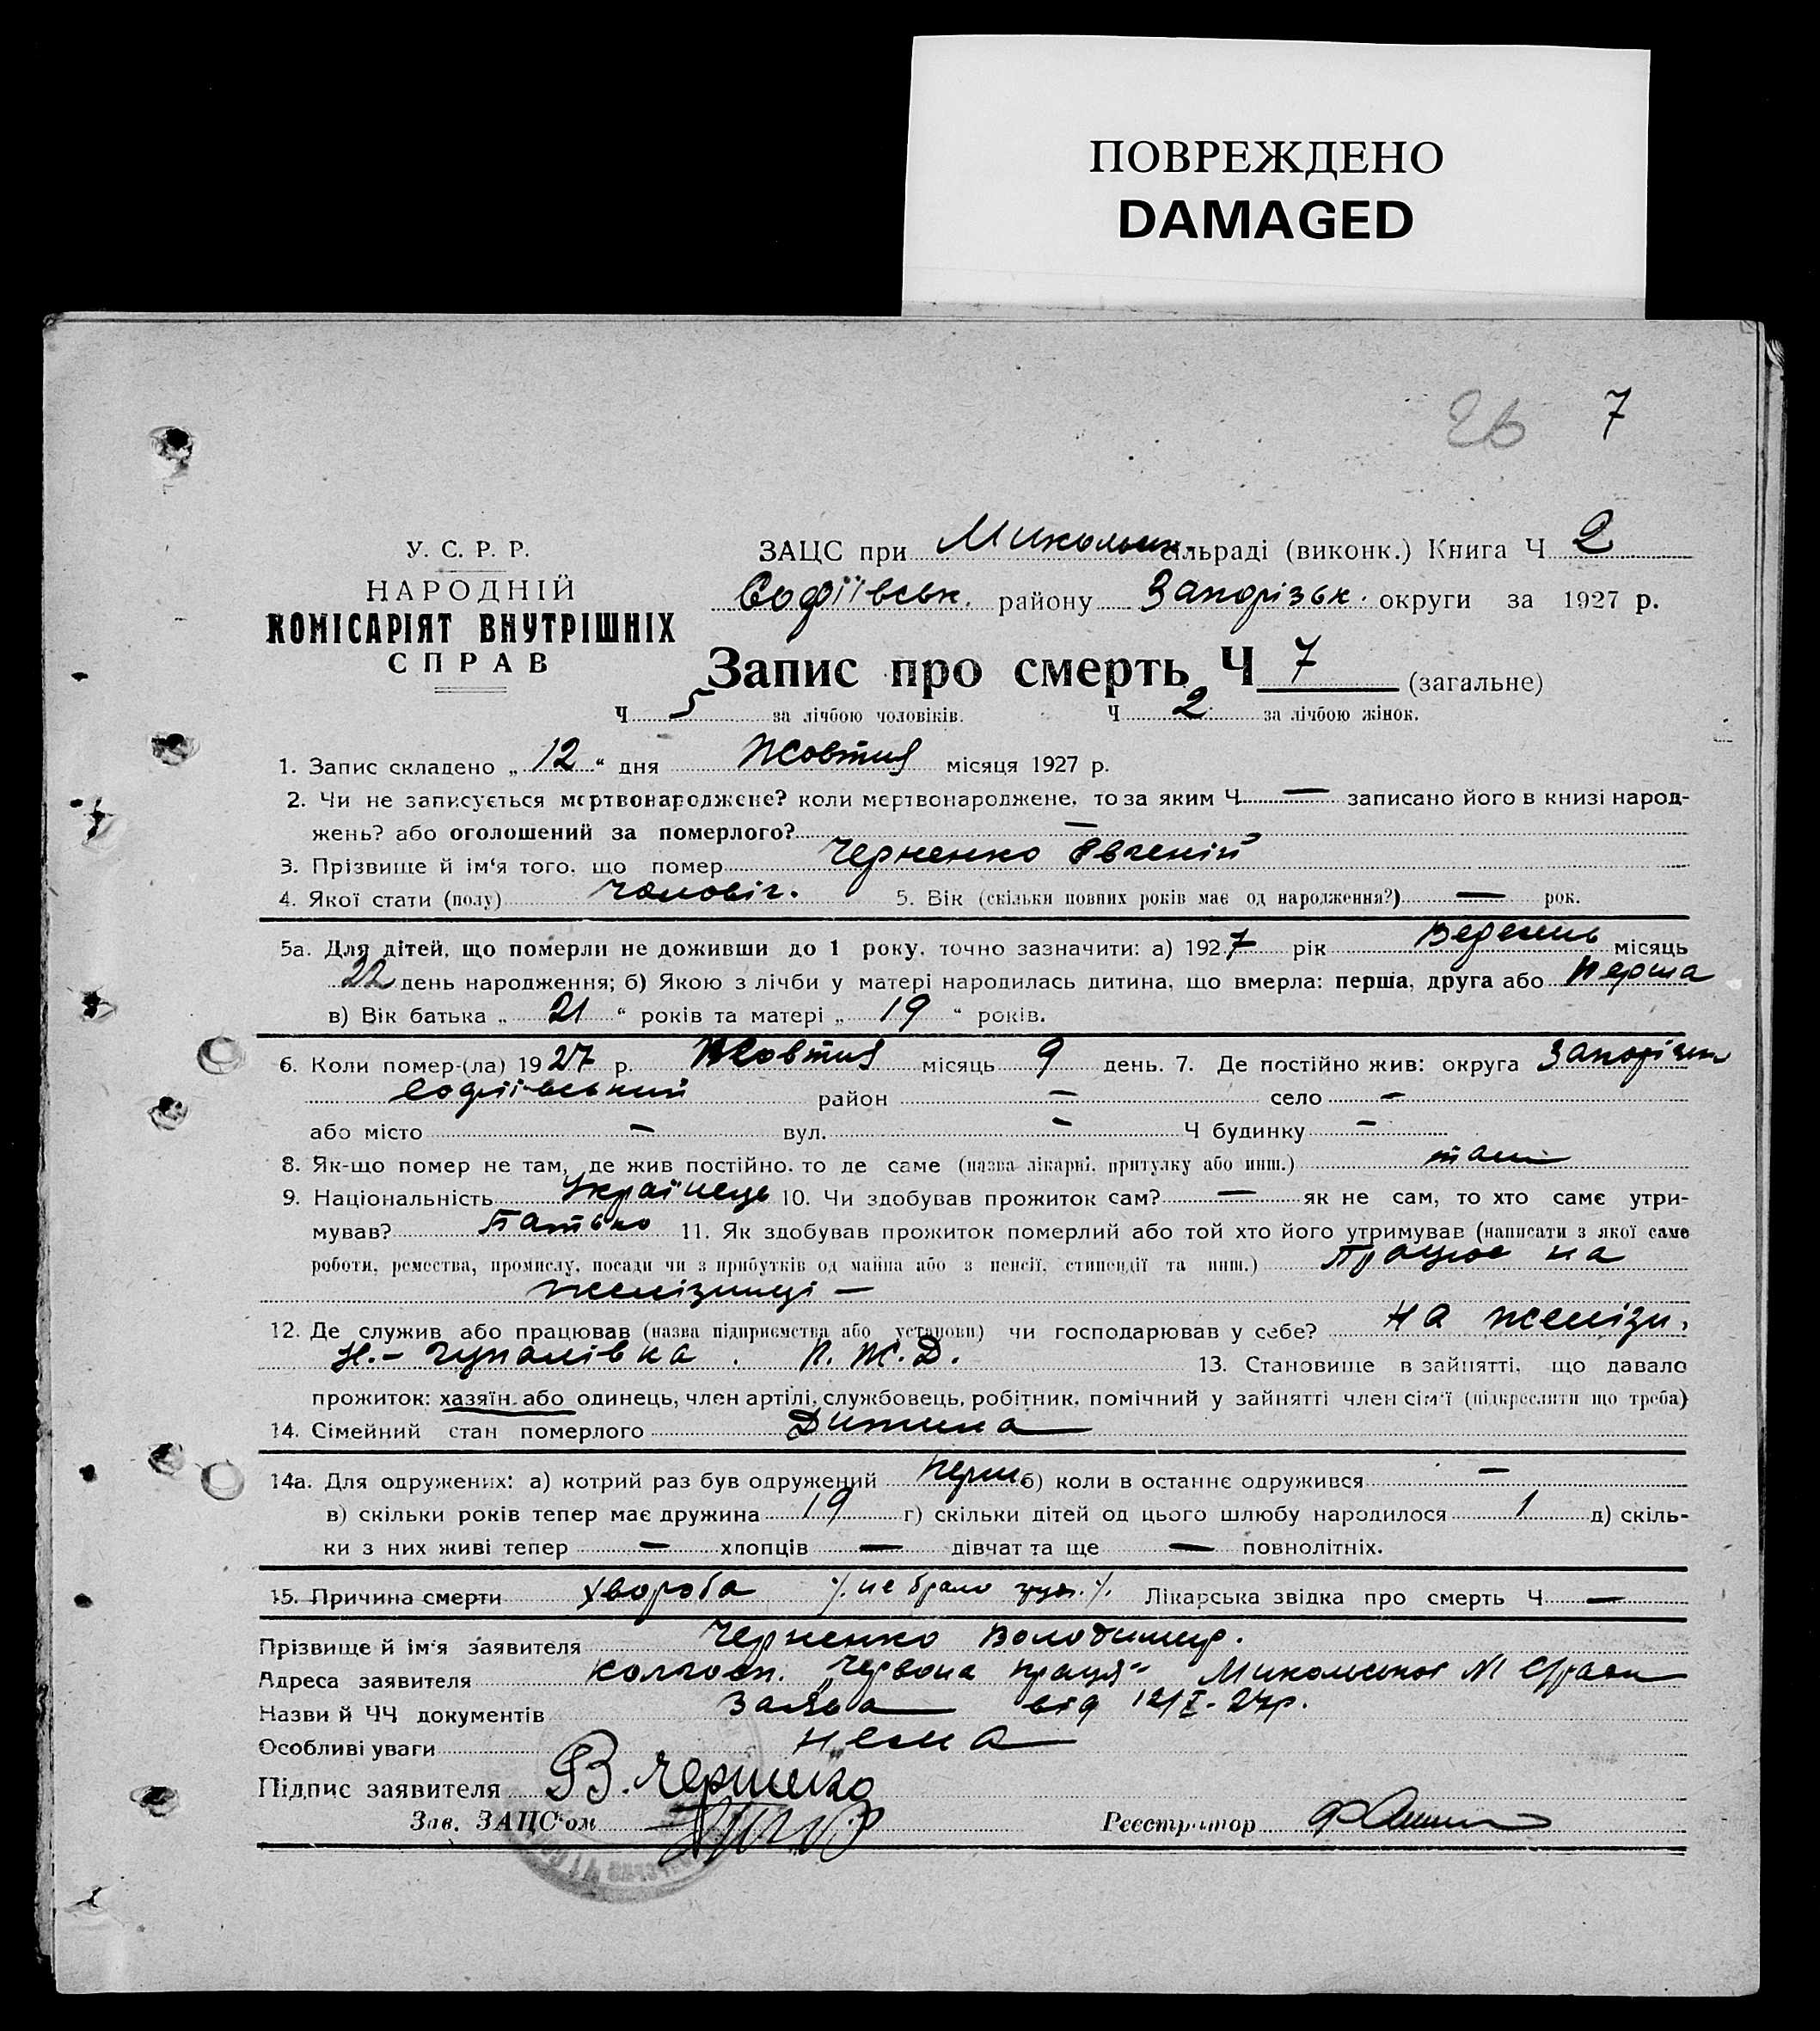 ПОВРЕЖДЕНО
DAMAGED
26 7
У. С. Р. Р.
НАРОДНІЙ
КОМІСАРІЯТ ВНУТРІШНІХ
СПРАВ
ЗАЦС при Микольск. сільраді (виконк.) Книга Ч 2
Софіївськ. району Запорізьк. округи за 1927 р.
Запис про смерть Ч 7 (загальне)
Ч 5 за лічбою чоловіків. Ч 2 за лічбою жінок.
1. Запис складено „ 12 “ дня Жовтня місяця 1927 р.
2. Чи не записується мертвонароджене? коли мертвонароджене, то за яким Ч — записано його в книзі народ-
жень? або оголошений за померлого? —
3. Прізвище й ім‘я того, що помер Черненко Євгеній
4. Якої стати (полу) чоловіч. 5. Вік (скільки повних років має од народження?) — рок.
5а. Для дітей, що померли не доживши до 1 року, точно зазначити: а) 1927 рік Вересень місяць
22 день народження; б) Якою з лічби у матері народилась дитина, що вмерла: перша, друга або перша
в) Вік батька „ 21 “ років та матері „ 19 “ років.
6. Коли помер-(ла) 1927 р. Жовтня місяць 9 день. 7. Де постійно жив: округа Запоріжж
Софіївський район — село —
або місто — вул. — Ч будинку —
8. Як-що помер не там, де жив постійно, то де саме (назва лікарні, притулку або инш.) там
9. Національність Українець 10. Чи здобував прожиток сам? — як не сам, то хто саме утри-
мував? Батько 11. Як здобував прожиток померлий або той хто його утримував (написати з якої саме
роботи, ремества, промислу, посади чи з прибутків од майна або з пенсії, стипендії та инш.) Працює на
желізниці —
12. Де служив або працював (назва підприємства або установи) чи господарював у себе? на желізн.
Н.-Гупалівка. П. Ж. Д. 13. Становище в зайнятті, що давало
прожиток: хазяїн або одинець, член артілі, службовець, робітник, помічний у зайнятті член сім‘ї (підкреслити що треба)
14. Сімейний стан померлого Дитина
14а. Для одружених: а) котрий раз був одружений перш. б) коли в останнє одружився —
в) скільки років тепер має дружина 19 г) скільки дітей од цього шлюбу народилося 1 д) скіль-
ки з них живі тепер — хлопців — дівчат та ще — повнолітніх.
15. Причина смерти хвороба /. не брало груд. /. Лікарська звідка про смерть Ч —
Прізвище й ім‘я заявителя Черненко Володимир.
Адреса заявителя колгосп. „Червона праця“ Микольської №1
Назви й ЧЧ документів Заява від 12/X-27р.
Особливі уваги нема
Підпис заявителя В. Черненко
Зав. ЗАЦС‘ом Реєстратор